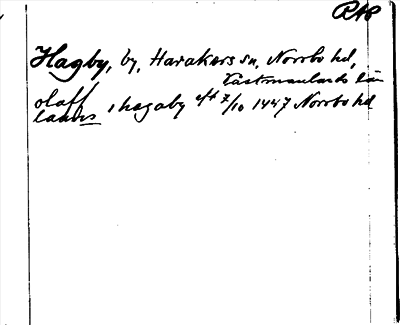 RAP
Hagby, by, Harakers sn, Norrbo hd,
Västmanlands län
olaff i hagaby eft 7/10 1447 Norrbo hd